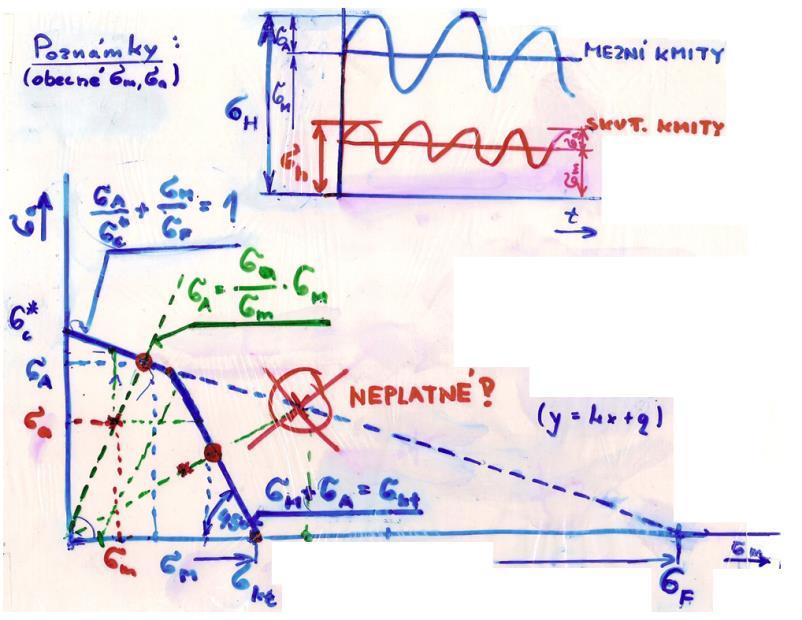 Poznámky:
(obecné σm, σa)
σA
σM
σH
MEZNÍ KMITY
SKUT. KMITY
σh
σa
σm
t
σ
σA/σc* + σM/σF = 1
σA = σa/σm · σM
σc*
σA
σa
NEPLATNÉ?
(y = kx + q)
σM + σA = σkt
45°
σm
σM
σkt
σF
σm